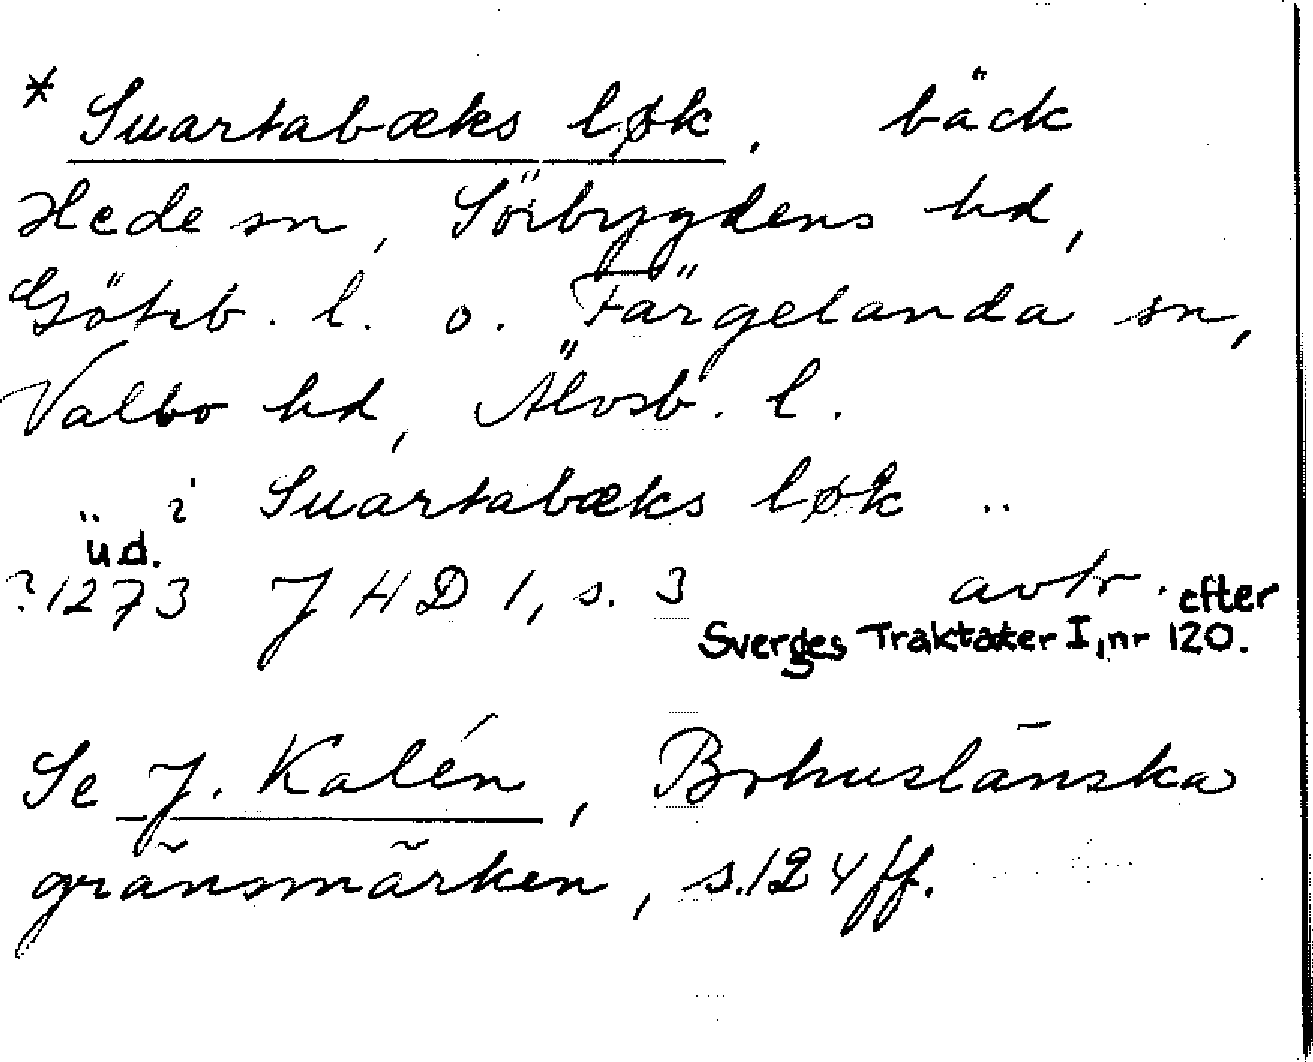 * Suartabæks løk. bäck
Hede sn, Sörbygdens hd,
Göteb. l. o. Färgelanda sn,
Valbo hd, Älvsb. l.
.. i Suartabæks løk ..
u.d.
?1273 JHD 1, s. 3 avtr. efter
Sverges Traktater I, nr 120.
Se J. Kalén, Bohuslänska
gränsmärken, s. 124 ff.